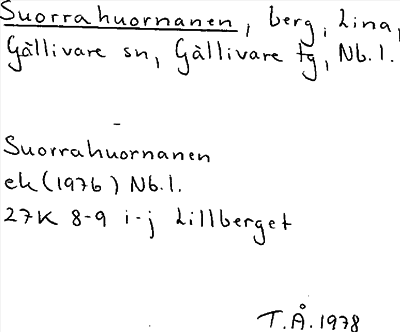 Suorrahuornanen, berg, Lina,
Gällivare sn, Gällivare tg, Nb. l.
Suorrahuornanen
ek (1976) Nb. l.
27K 8-9 i-j Lillberget
T.Å. 1978